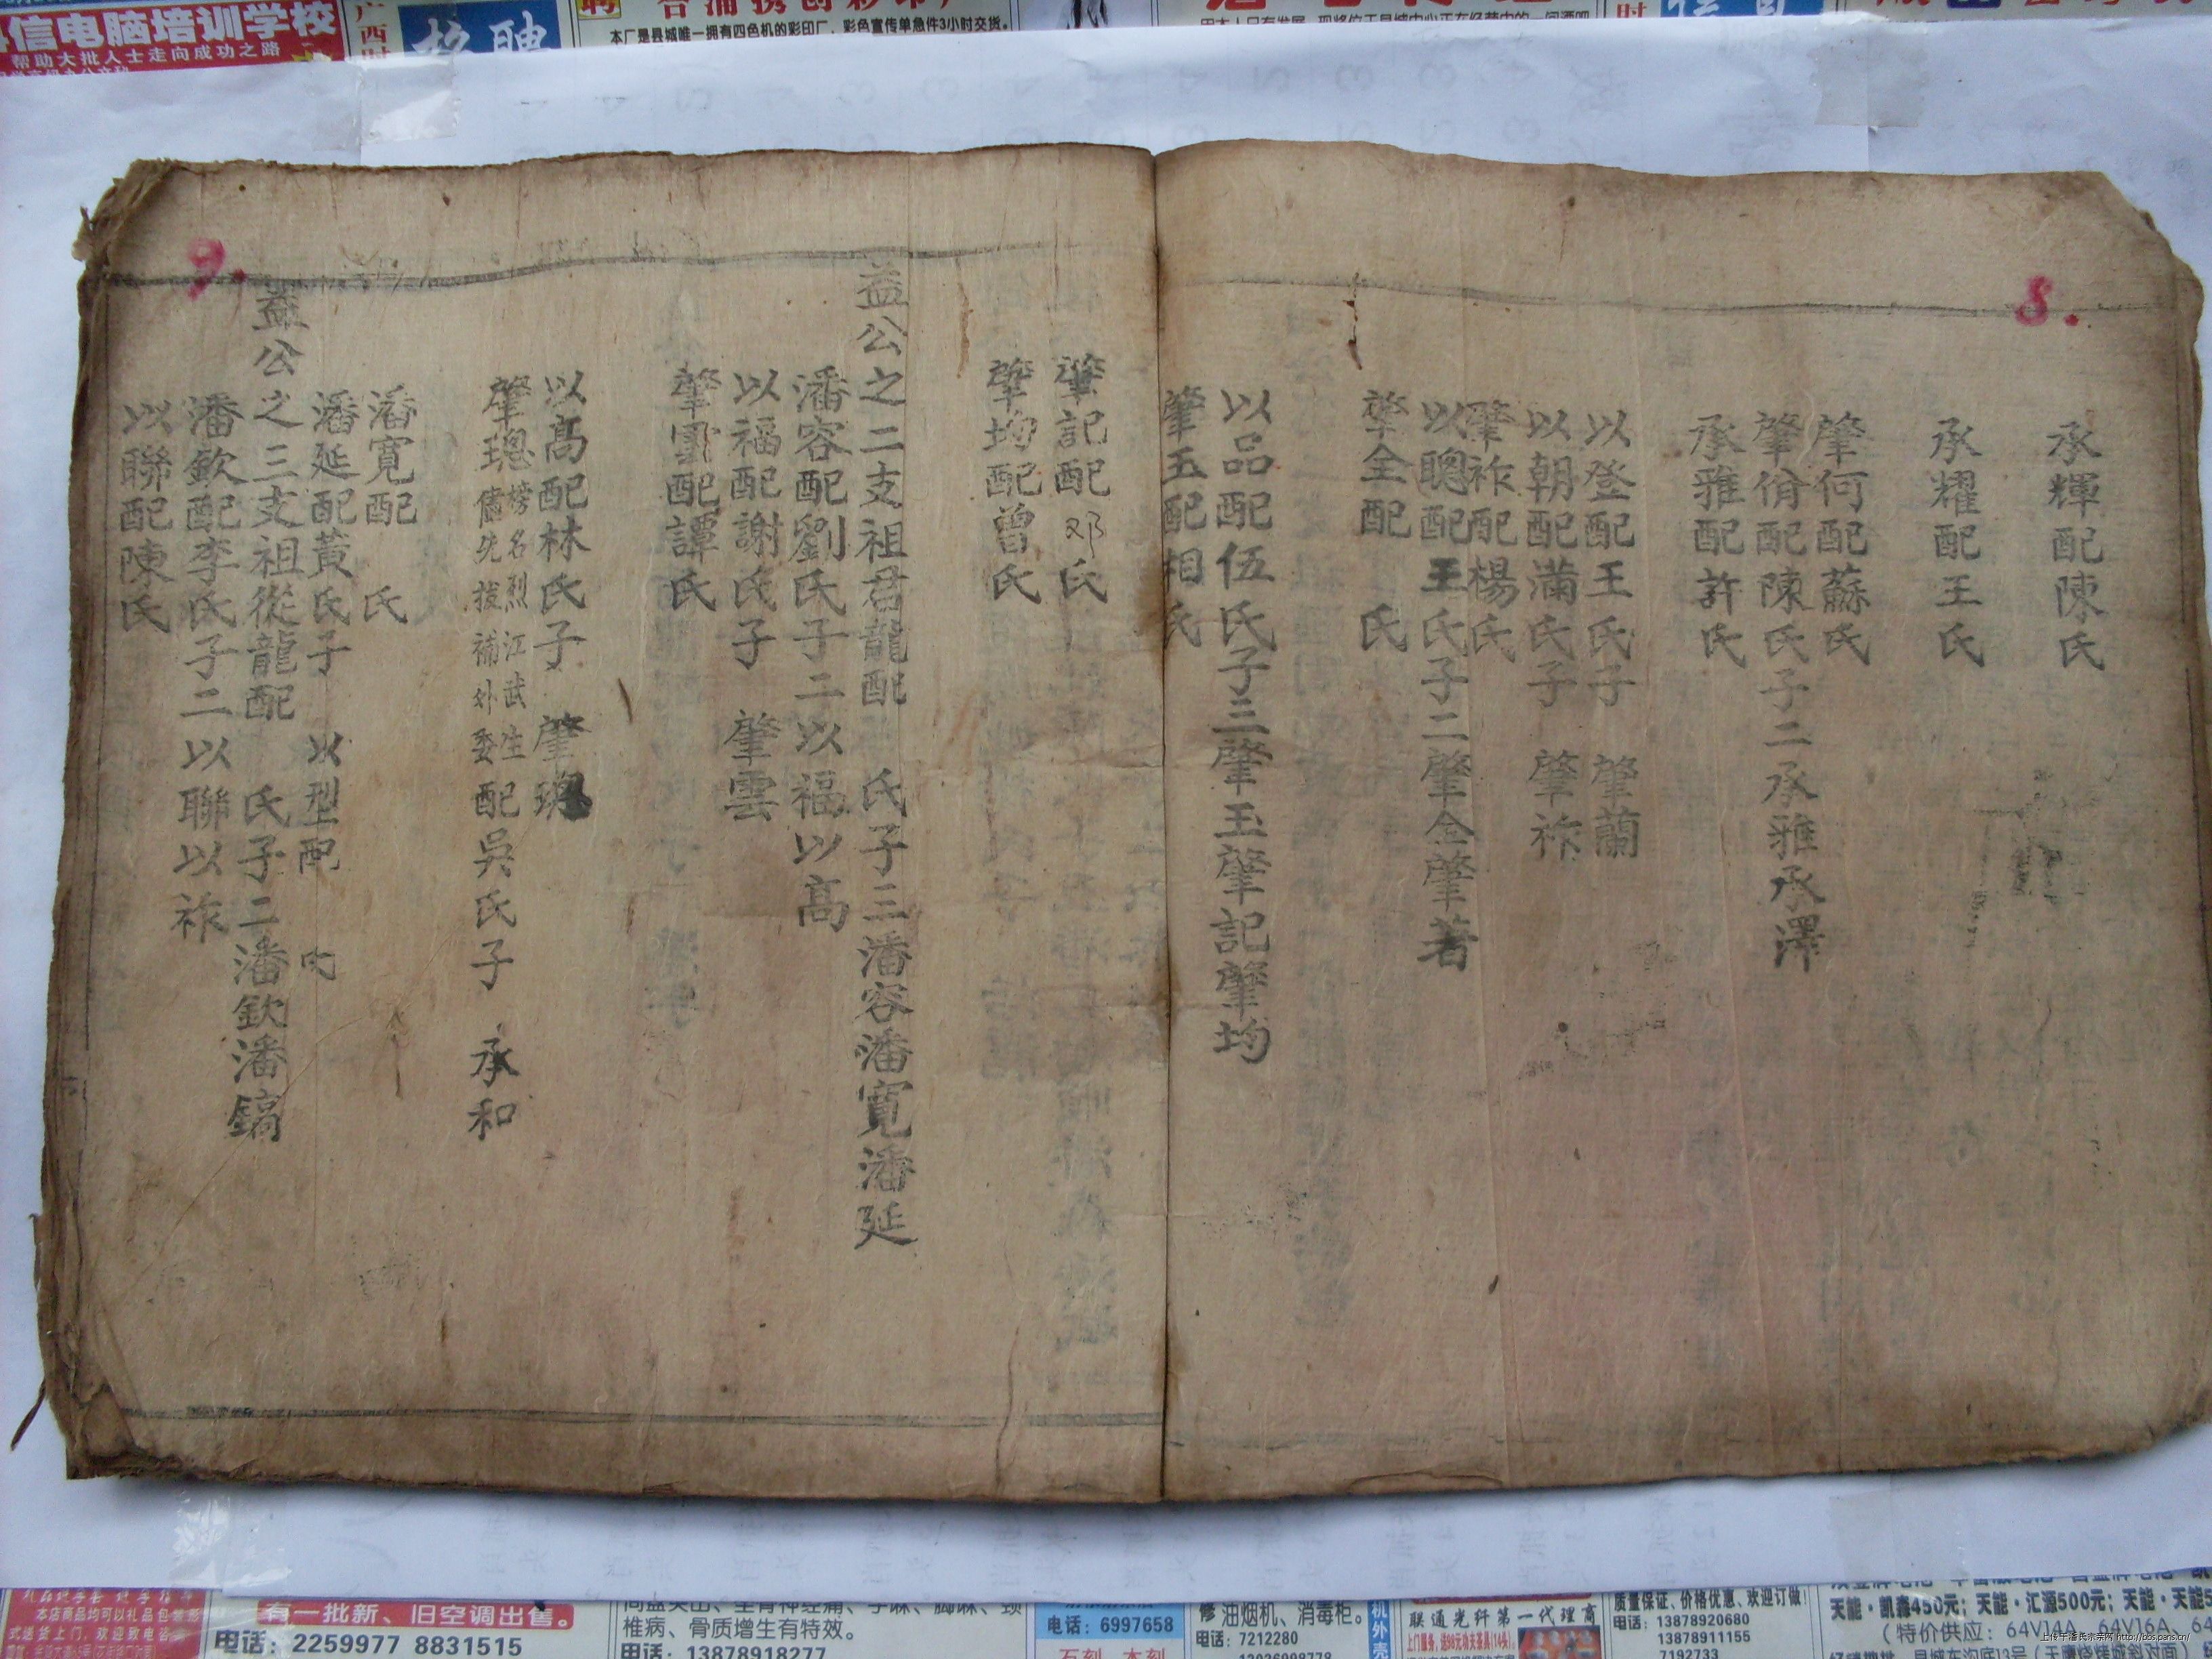 8.
承輝配陳氏
承耀配王氏
肇何配蘇氏
肇脩配陳氏子二承雅承澤
承雅配許氏
以登配王氏子 肇蘭
以朝配滿氏子 肇祚
肇祚配楊氏
以聰配王氏子二肇全肇著
肇全配 氏
以品配伍氏子三肇玉肇記肇均
肇玉配相氏
肇記配邓氏
肇均配曾氏
益公之二支祖君龍配 氏子三潘容潘寬潘延
潘容配劉氏子二以福以高
以福配謝氏子 肇雲
肇雲配譚氏
以高配林氏子 肇璁
肇璁榜名烈江武生僃先拔補外委配吳氏子 承和
潘寬配 氏
潘延配黃氏子 以型配 氏
益公之三支祖從龍配 氏子二潘欽潘鎬
潘欽配李氏子二以聯以祚
以聯配陳氏
9.
信电脑培训学校
帮助大批人士走向成功之路
招聘
本厂是县城唯一拥有四色机的彩印厂，彩色宣传单急件3小时交货。
有一批新、旧空调出售。
电话：2259977 8831515
本店商品均可以礼品包装形
式送货上门，欢迎致电咨
椎病、骨质增生有特效。
电话：13878918277
电话：6997658
修油烟机、消毒柜。
电话：7212280
联通光纤第一代理商
质量保证、价格优惠、欢迎订做!
电话：13878920680
13878911155
7192733
天能·凯森450元；天能·汇源500元；天能·天能5
（特价供应：64V14A、64V16A、64
上传于潘氏宗亲网 http://bbs.pans.cn/